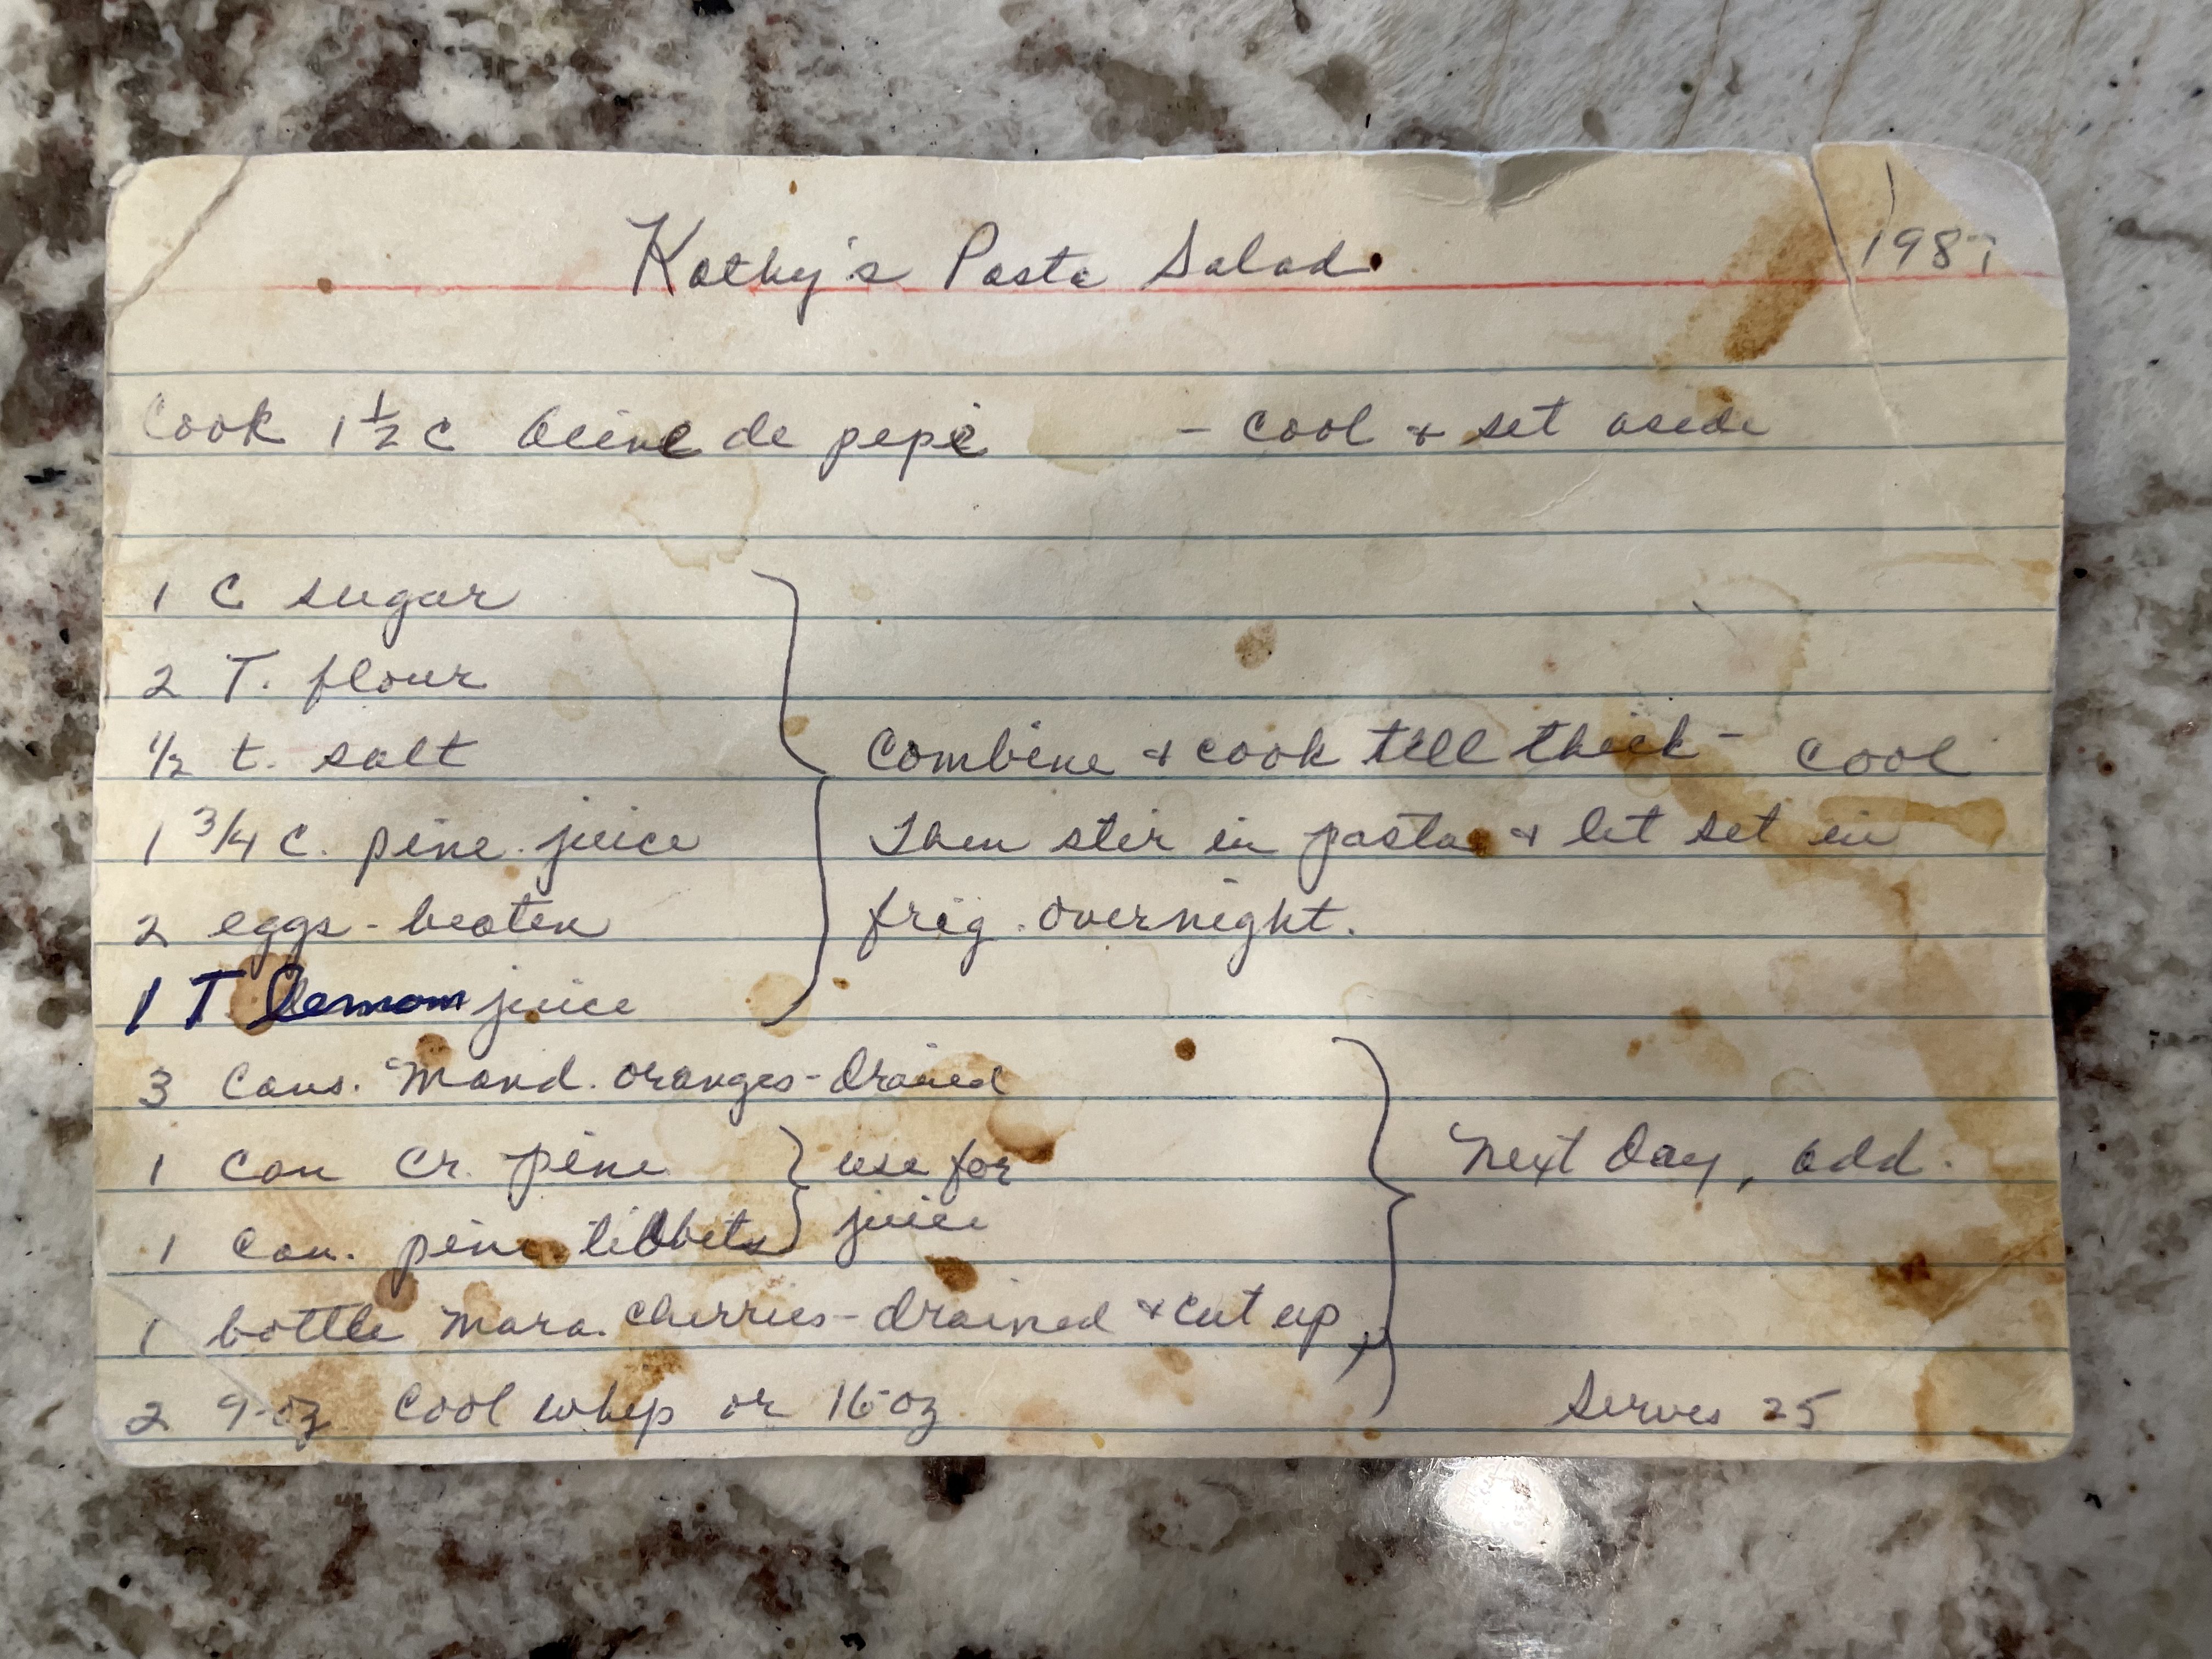 Kathy's Pasta Salad 1987
Cook 1 1/2 c acine de pepe - cool & set aside
1 C sugar
2 T. flour
1/2 t. salt Combine & cook till thick - cool
1 3/4 c. pine. juice Then stir in pasta & let set in
2 eggs - beaten frig. overnight.
1 T lemon juice
3 Cans. Mand. oranges - Drained
1 Can Cr. pine } use for Next Day, add.
1 Can. pine. tidbits } juice
1 bottle Mara. Cherries - Drained & cut up
2 9-oz. Cool Whip or 16-oz Serves 25